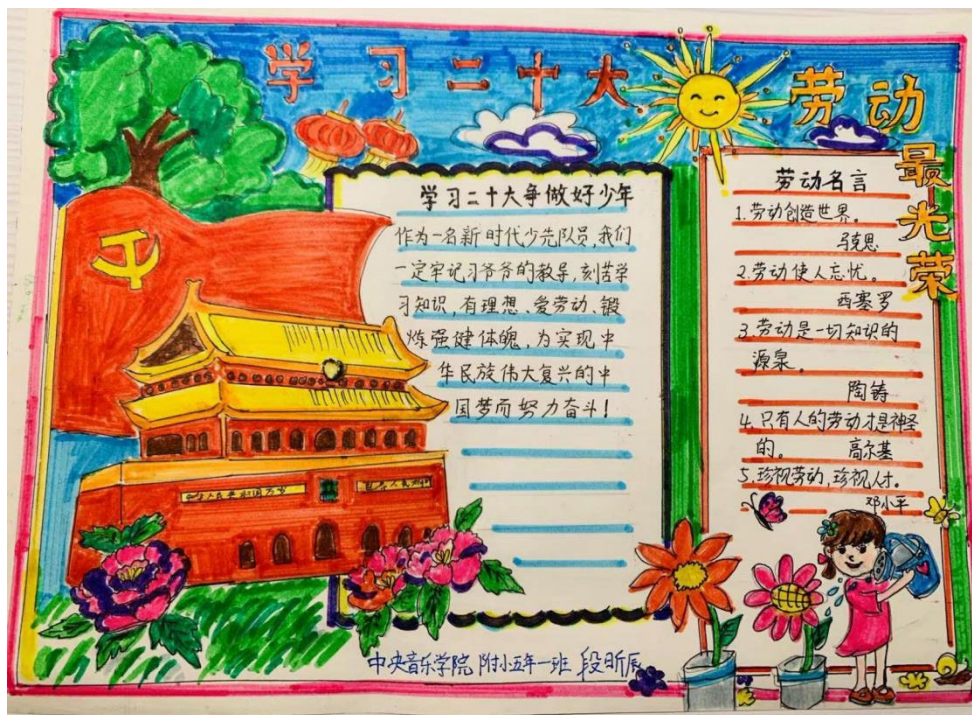 学习二十大
劳动
最光荣
学习二十大争做好少年
作为一名新时代少先队员,我们
一定牢记习爷爷的教导,刻苦学
习知识,有理想、爱劳动、锻
炼强健体魄,为实现中
华民族伟大复兴的中
国梦而努力奋斗!
劳动名言
1.劳动创造世界。
马克思
2.劳动使人忘忧。
西塞罗
3.劳动是一切知识的
源泉。
陶铸
4.只有人的劳动才是神圣
的。 高尔基
5.珍视劳动,珍视人才。
邓小平
中央音乐学院 附小五年一班 段昕辰